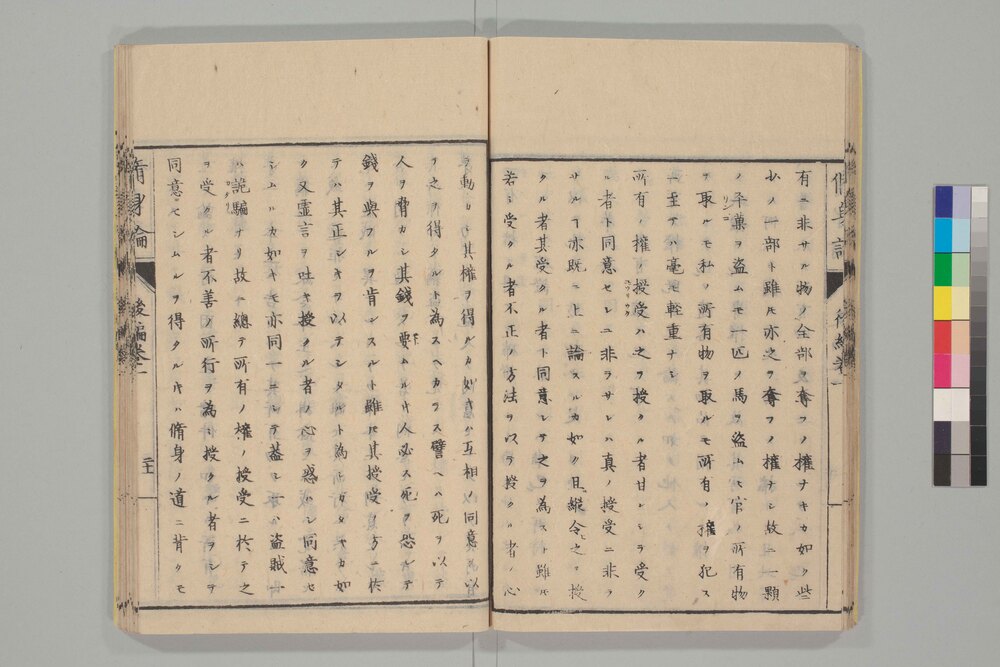 有ニ非サル物ノ全部ヲ奪フノ權ナキカ如ク些
少ノ一部ト雖モ亦之ヲ奪フノ權ナシ故ニ一顆
ノ苹菓ヲ盗ムモ一匹ノ馬ヲ盗ムモ官ノ所有物
リンゴ
ヲ取ルモ私ノ所有物ヲ取ルモ所有ノ權ヲ犯ス
ニ至テハ毫モ軽重ナシ
所有ノ權ノ授受ハ之ヲ授クル者甘ンシテ受ク
ル者ト同意セルニ非ラサレハ真ノ授受ニ非ラ
サルヿ亦既ニ上ニ論スルカ如ク且縱令之ヲ授
クル者其受クル者ト同意シテ之ヲ為スト雖モ
若シ受クル者不正ノ方法ヲ以テ授クル者ノ心
ヲ動カシ其權ヲ得ルカ如キハ互相ノ同意ヲ以
テ之ヲ得タルト為スヘカラス譬ヘハ死ヲ以テ
人ヲ脅カシ其錢ヲ要ムル片人必ス死ヲ恐ルテ
錢ヲ與フルヲ肯ンスルト雖モ其授受ノ方ニ於
テハ其正シキヲ以テシタルト為シガタキカ如
ク又虚言ヲ吐キ授クル者ノ心ヲ惑ハシ同意セ
シムルカ如キモ亦同一ニシテ蓋シ一ハ盗賊一
ハ詭騙ナリ故ニ總テ所有ノ權ノ授受ニ於テ之
カタリ
ヲ受クル者不善ノ所行ヲ為シ授クル者ヲシテ
同意セシムルヲ得タル片ハ脩身ノ道ニ背クモ
脩身論
後編巻一
二十